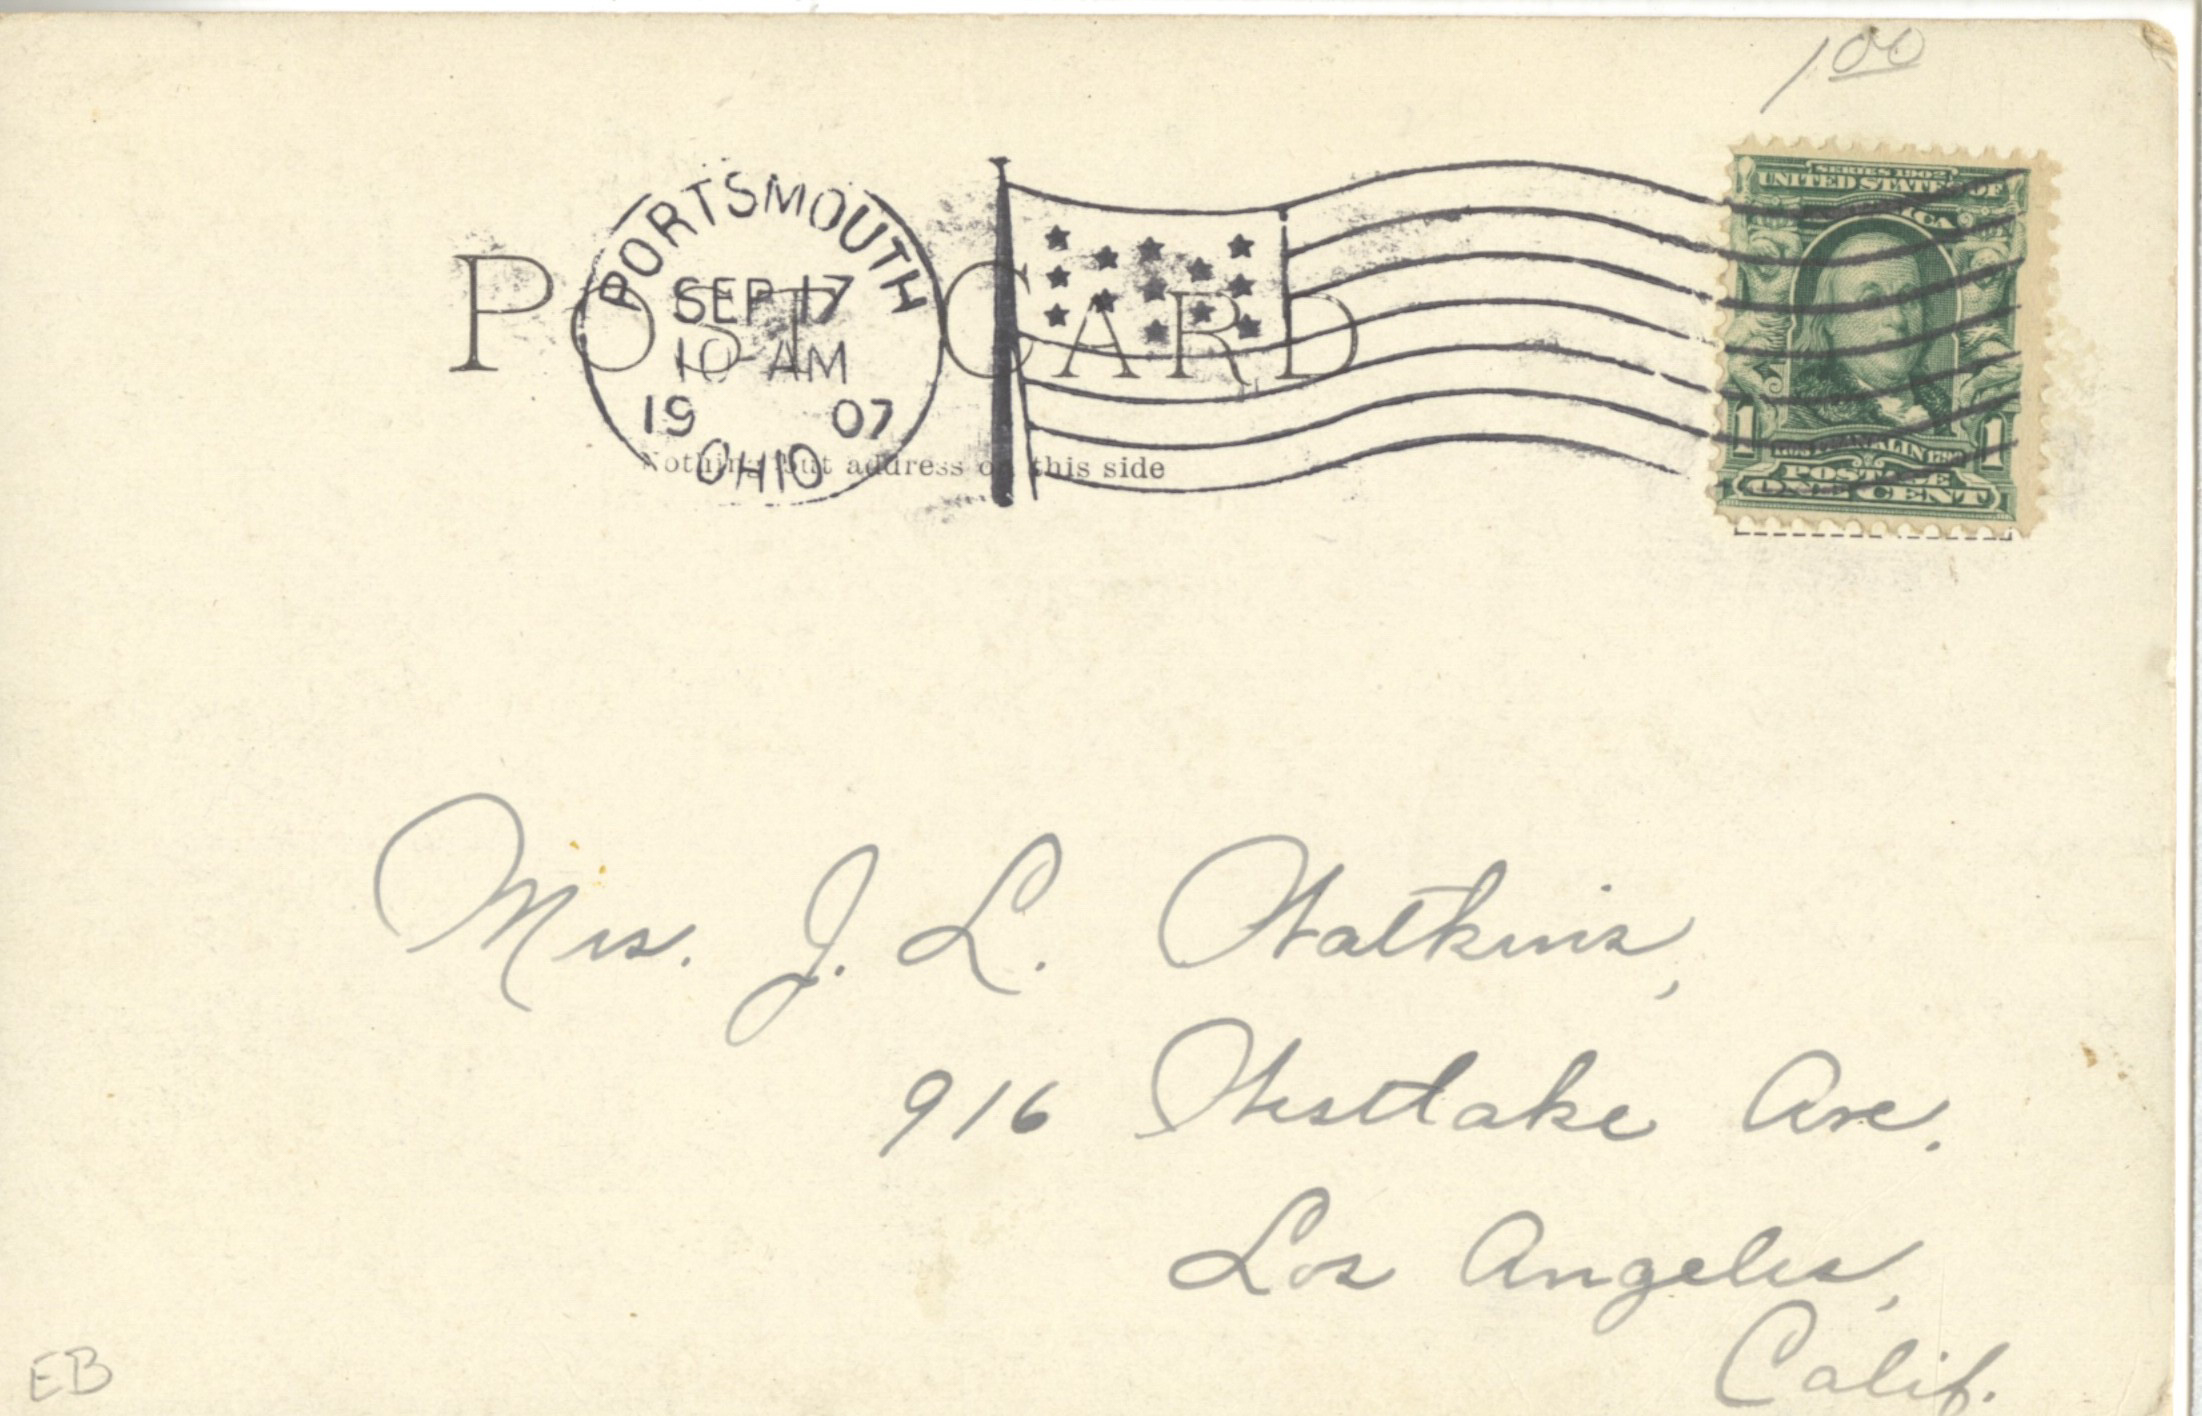 1 00
PORTSMOUTH
SEP 17
10 AM
19 07
OHIO
POST CARD
Nothing but address on this side
SERIES 1902
UNITED STATES OF
AMERICA
1 1
POSTAGE
ONE CENT
Mrs. J. L. Watkins,
916 Westlake Ave.
Los Angeles,
Calif.
EB